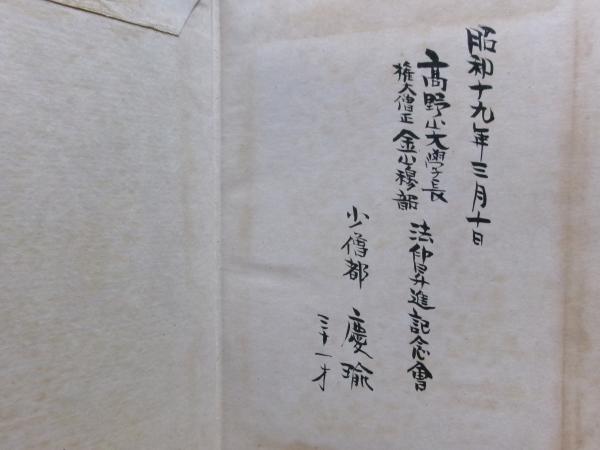 昭和十九年三月十日
高野山大學々長
権大僧正 金山穆韶
法印昇進記念會
少僧都 慶瑜
三十一才